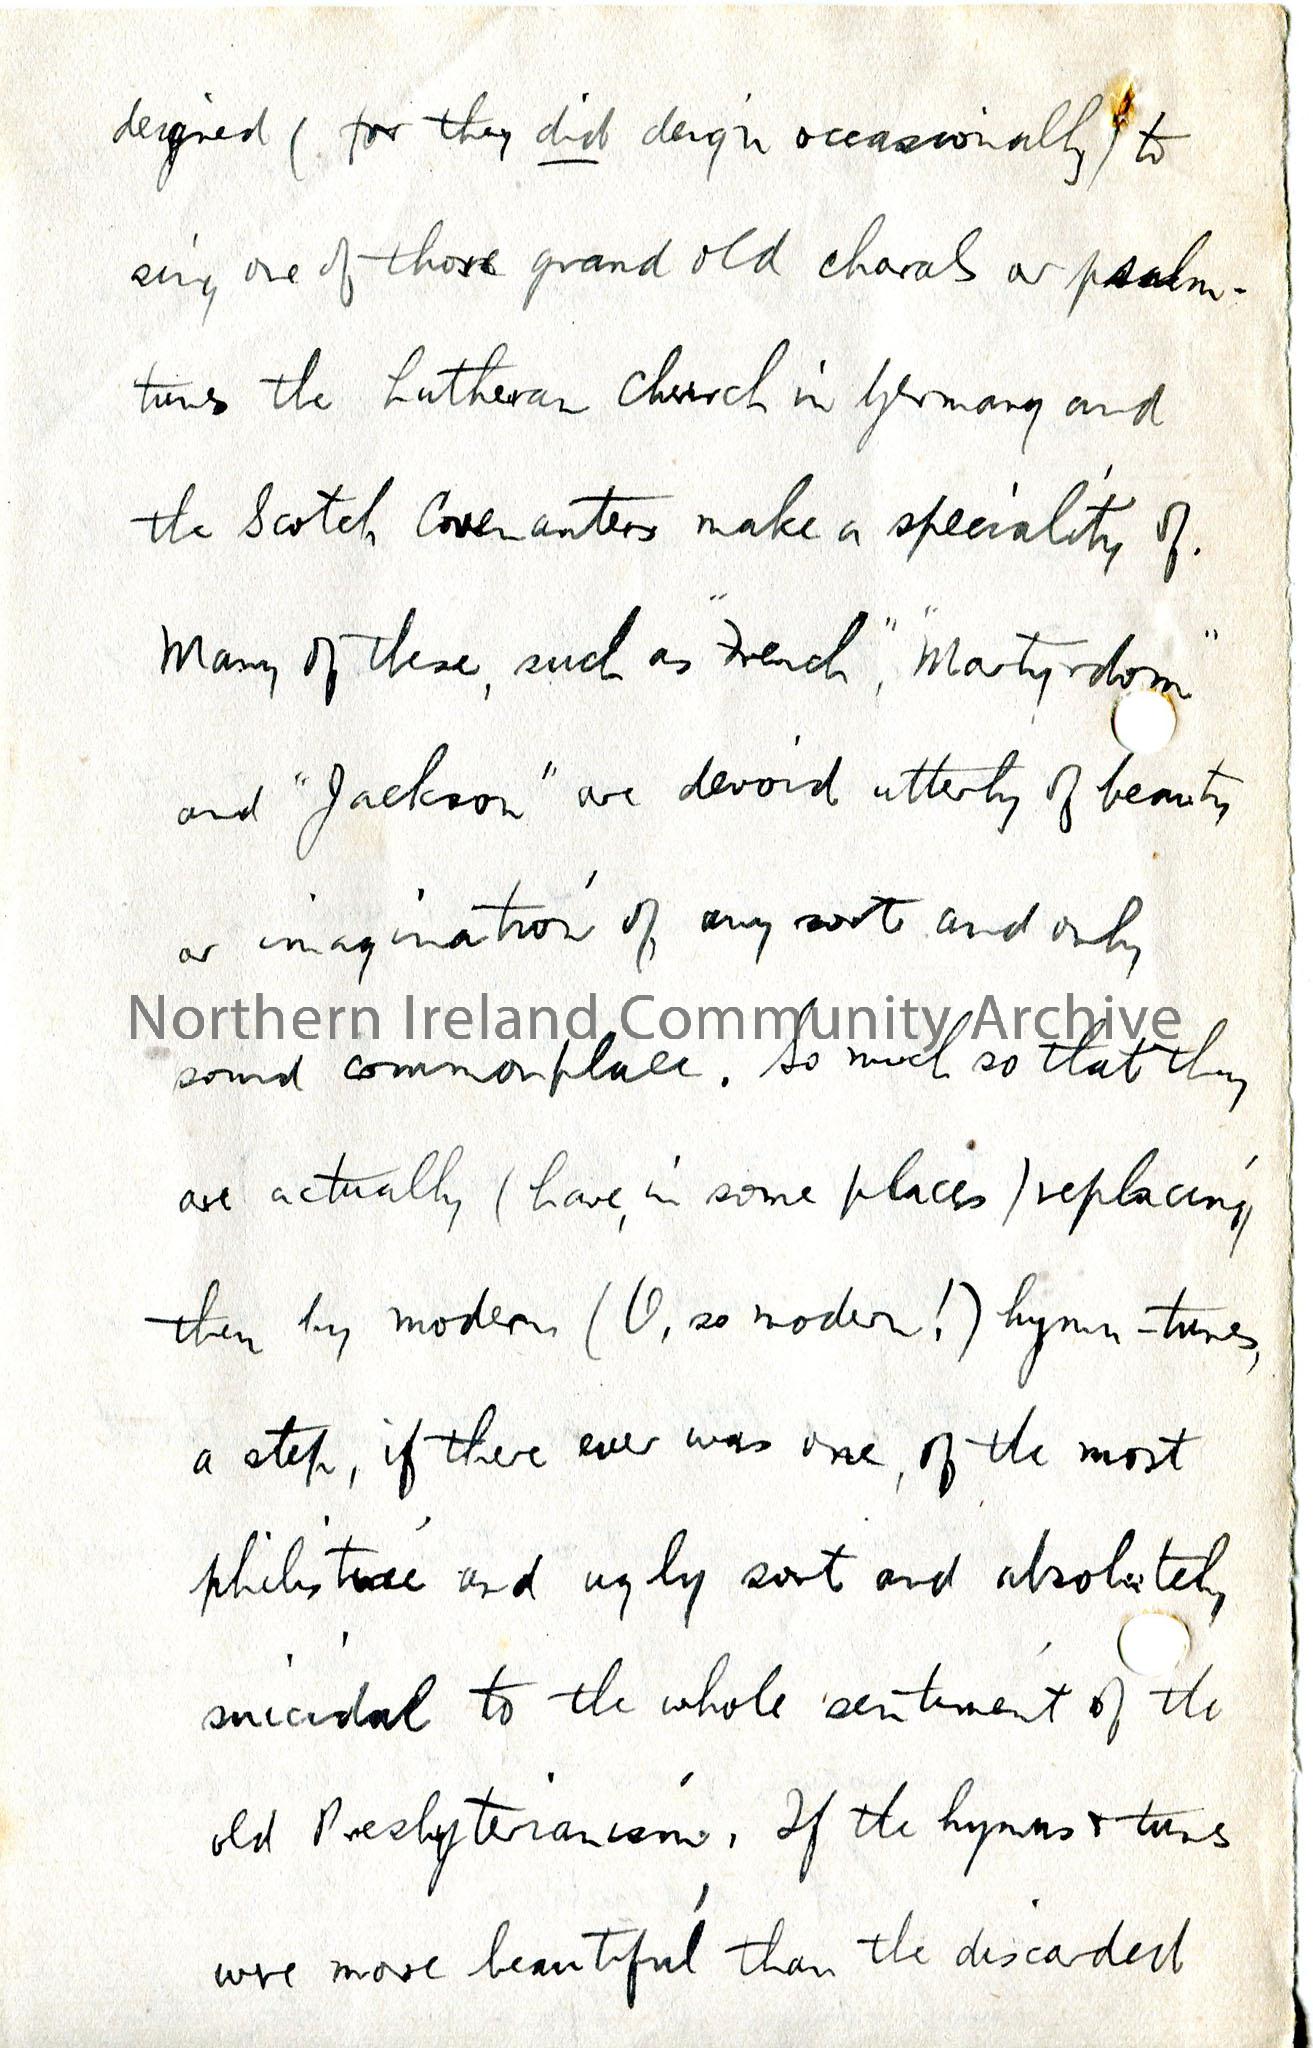 deigned (for they did deign occasionally) to
sing one of those grand old chorals or psalm-
tunes the Lutheran Church in Germany and
the Scotch Covenanters make a speciality of.
Many of these, such as "French", "Martyrdom"
and "Jackson" are devoid utterly of beauty
or imagination of any sort and only
Northern Ireland Community Archive
sound commonplace. So much so that they
are actually (have, in some places) replacing
them by modern (O, so modern!) hymn-tunes,
a step, if there ever was one, of the most
philistine and ugly sort and absolutely
suicidal to the whole sentiment of the
old Presbyterianism. If the hymns & tunes
were more beautiful than the discarded